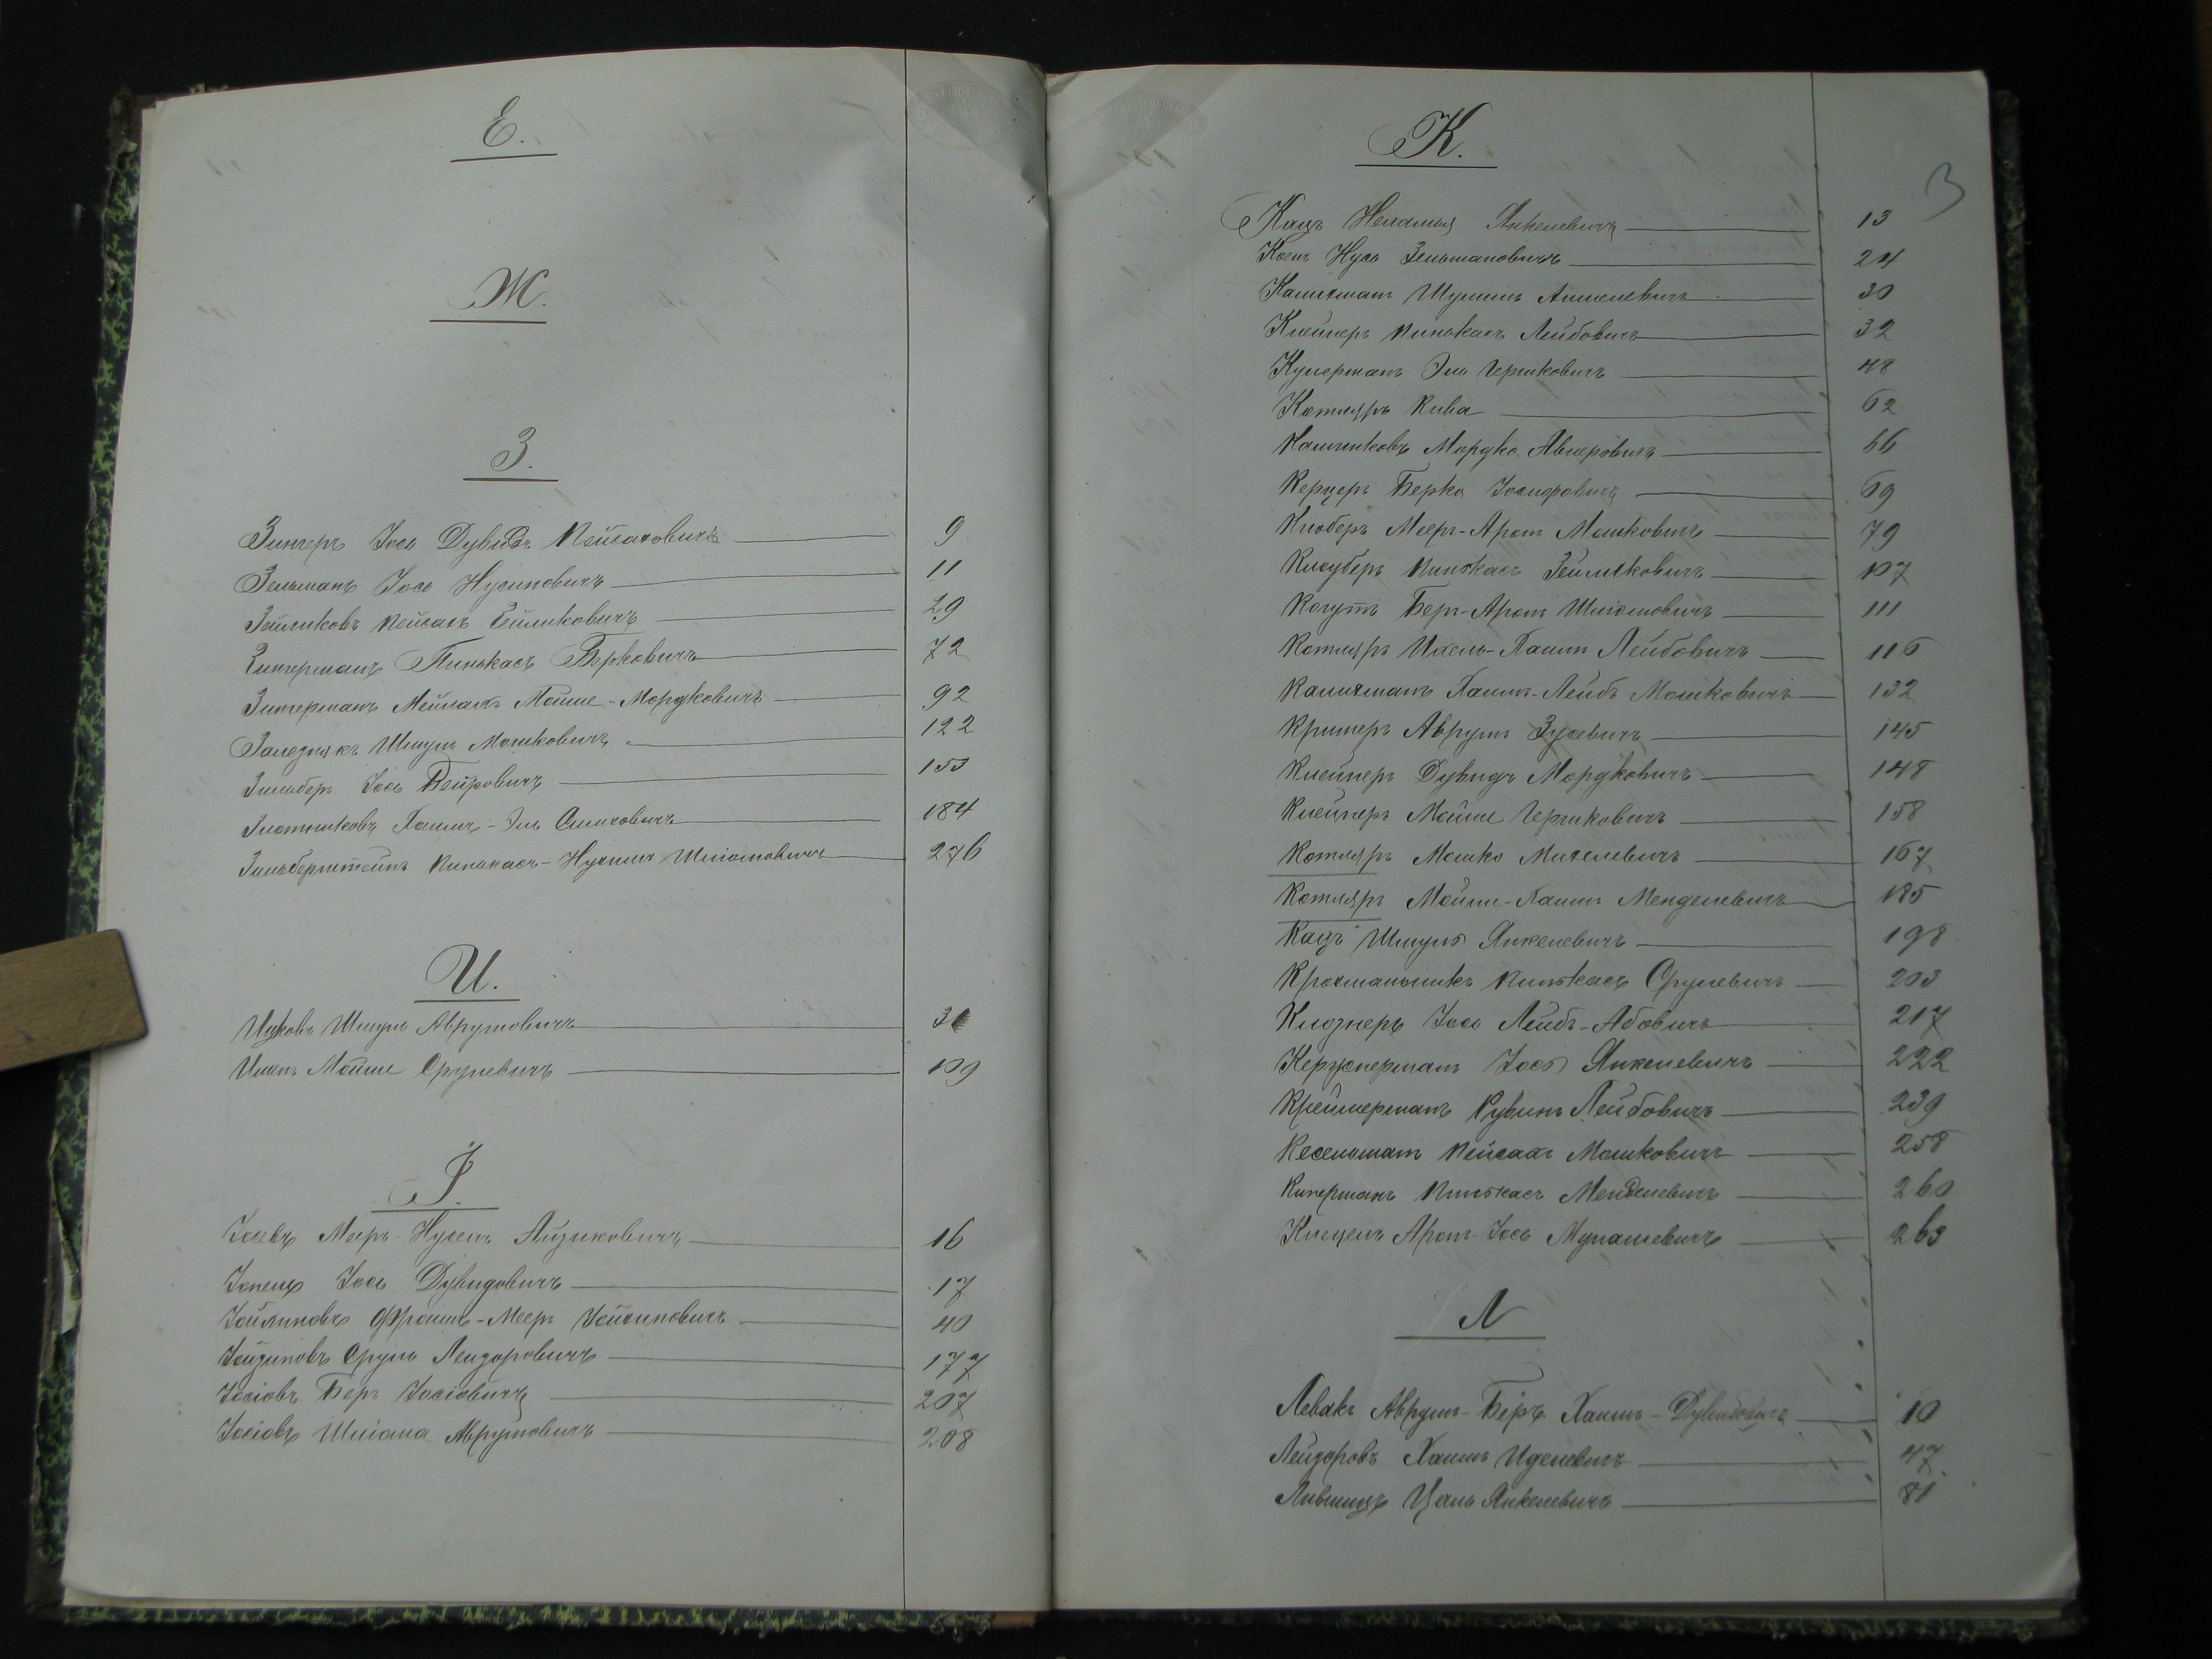 Е.
Ж.
З.
Зингеръ Іось Дувидъ Пейсаховичъ 9
Зельманъ Іось Нусиновичъ 11
Зейликовъ Пейсахъ Зейликовичъ 29
Зингерманъ Пинькасъ Берковичъ 72
Зингерманъ Мейлахъ Мойше-Мордковичъ 92
Заледнякъ Шмулъ Мошковичъ 122
Зильберъ Іось Бейровичъ 153
Злотниковъ Хаимъ-Эль 184
Зильберштейнъ Пинькасъ-Нухимъ Шліомовичъ 276
И.
Ицковъ Шмуль Аврумовичъ
Мойше Срулевичъ 109
І.
Мееръ-Нусенъ Айзиковичъ 16
Іось Дувидовичъ 17
Фроимъ-Мееръ 40
Сруль Лейзоровичъ 177
Іосіовъ Беръ Іосіовичъ 207
Іосіовъ Шліома Аврумовичъ 208
К.
3
Кацъ Янкелевичъ 13
Нусь Зельмановичъ 24
Калихманъ Шулимъ Аншелевичъ 30
Клейнеръ Пинькасъ Лейбовичъ 32
Куперманъ Эль Гершковичъ 48
Котляръ Кива 62
Мордко Авнеровичъ 66
Керцеръ Берко Іосиповичъ 69
Клюберъ Мееръ-Аронъ Мошковичъ 79
Клеуберъ Пинькасъ Зейликовичъ 107
Когутъ Беръ-Аронъ Шліомовичъ 111
Котляръ Ихель-Хаимъ Лейбовичъ 116
Калихманъ Хаимъ-Лейбъ Мошковичъ 132
Кримеръ Аврумъ Зусевичъ 145
Клейнеръ Дувидъ Мордковичъ 148
Клейнеръ Мойше Гершковичъ 158
Котляръ Мошко Михелевичъ 167
Котляръ Мойше-Хаимъ Менделевичъ 185
Кацъ Шмуль Янкелевичъ 198
Крохмальникъ Пинькасъ Срулевичъ 203
Клюзнеръ Іось Лейбъ-Абовичъ 217
Кержнерманъ Іось Янкелевичъ 222
Креймерманъ Рувинъ Лейбовичъ 239
Кесельманъ Пейсахъ Мошковичъ 258
Киперманъ Пинькасъ Менделевичъ 260
Клецель Аронъ-Іось Мунашевичъ 263
Л
Левакъ Аврумъ-Беръ Хаимъ-Дувидовичъ 10
Лейзоровъ Хаимъ Иделевичъ 47
Лившицъ Цаль Янкелевичъ 81